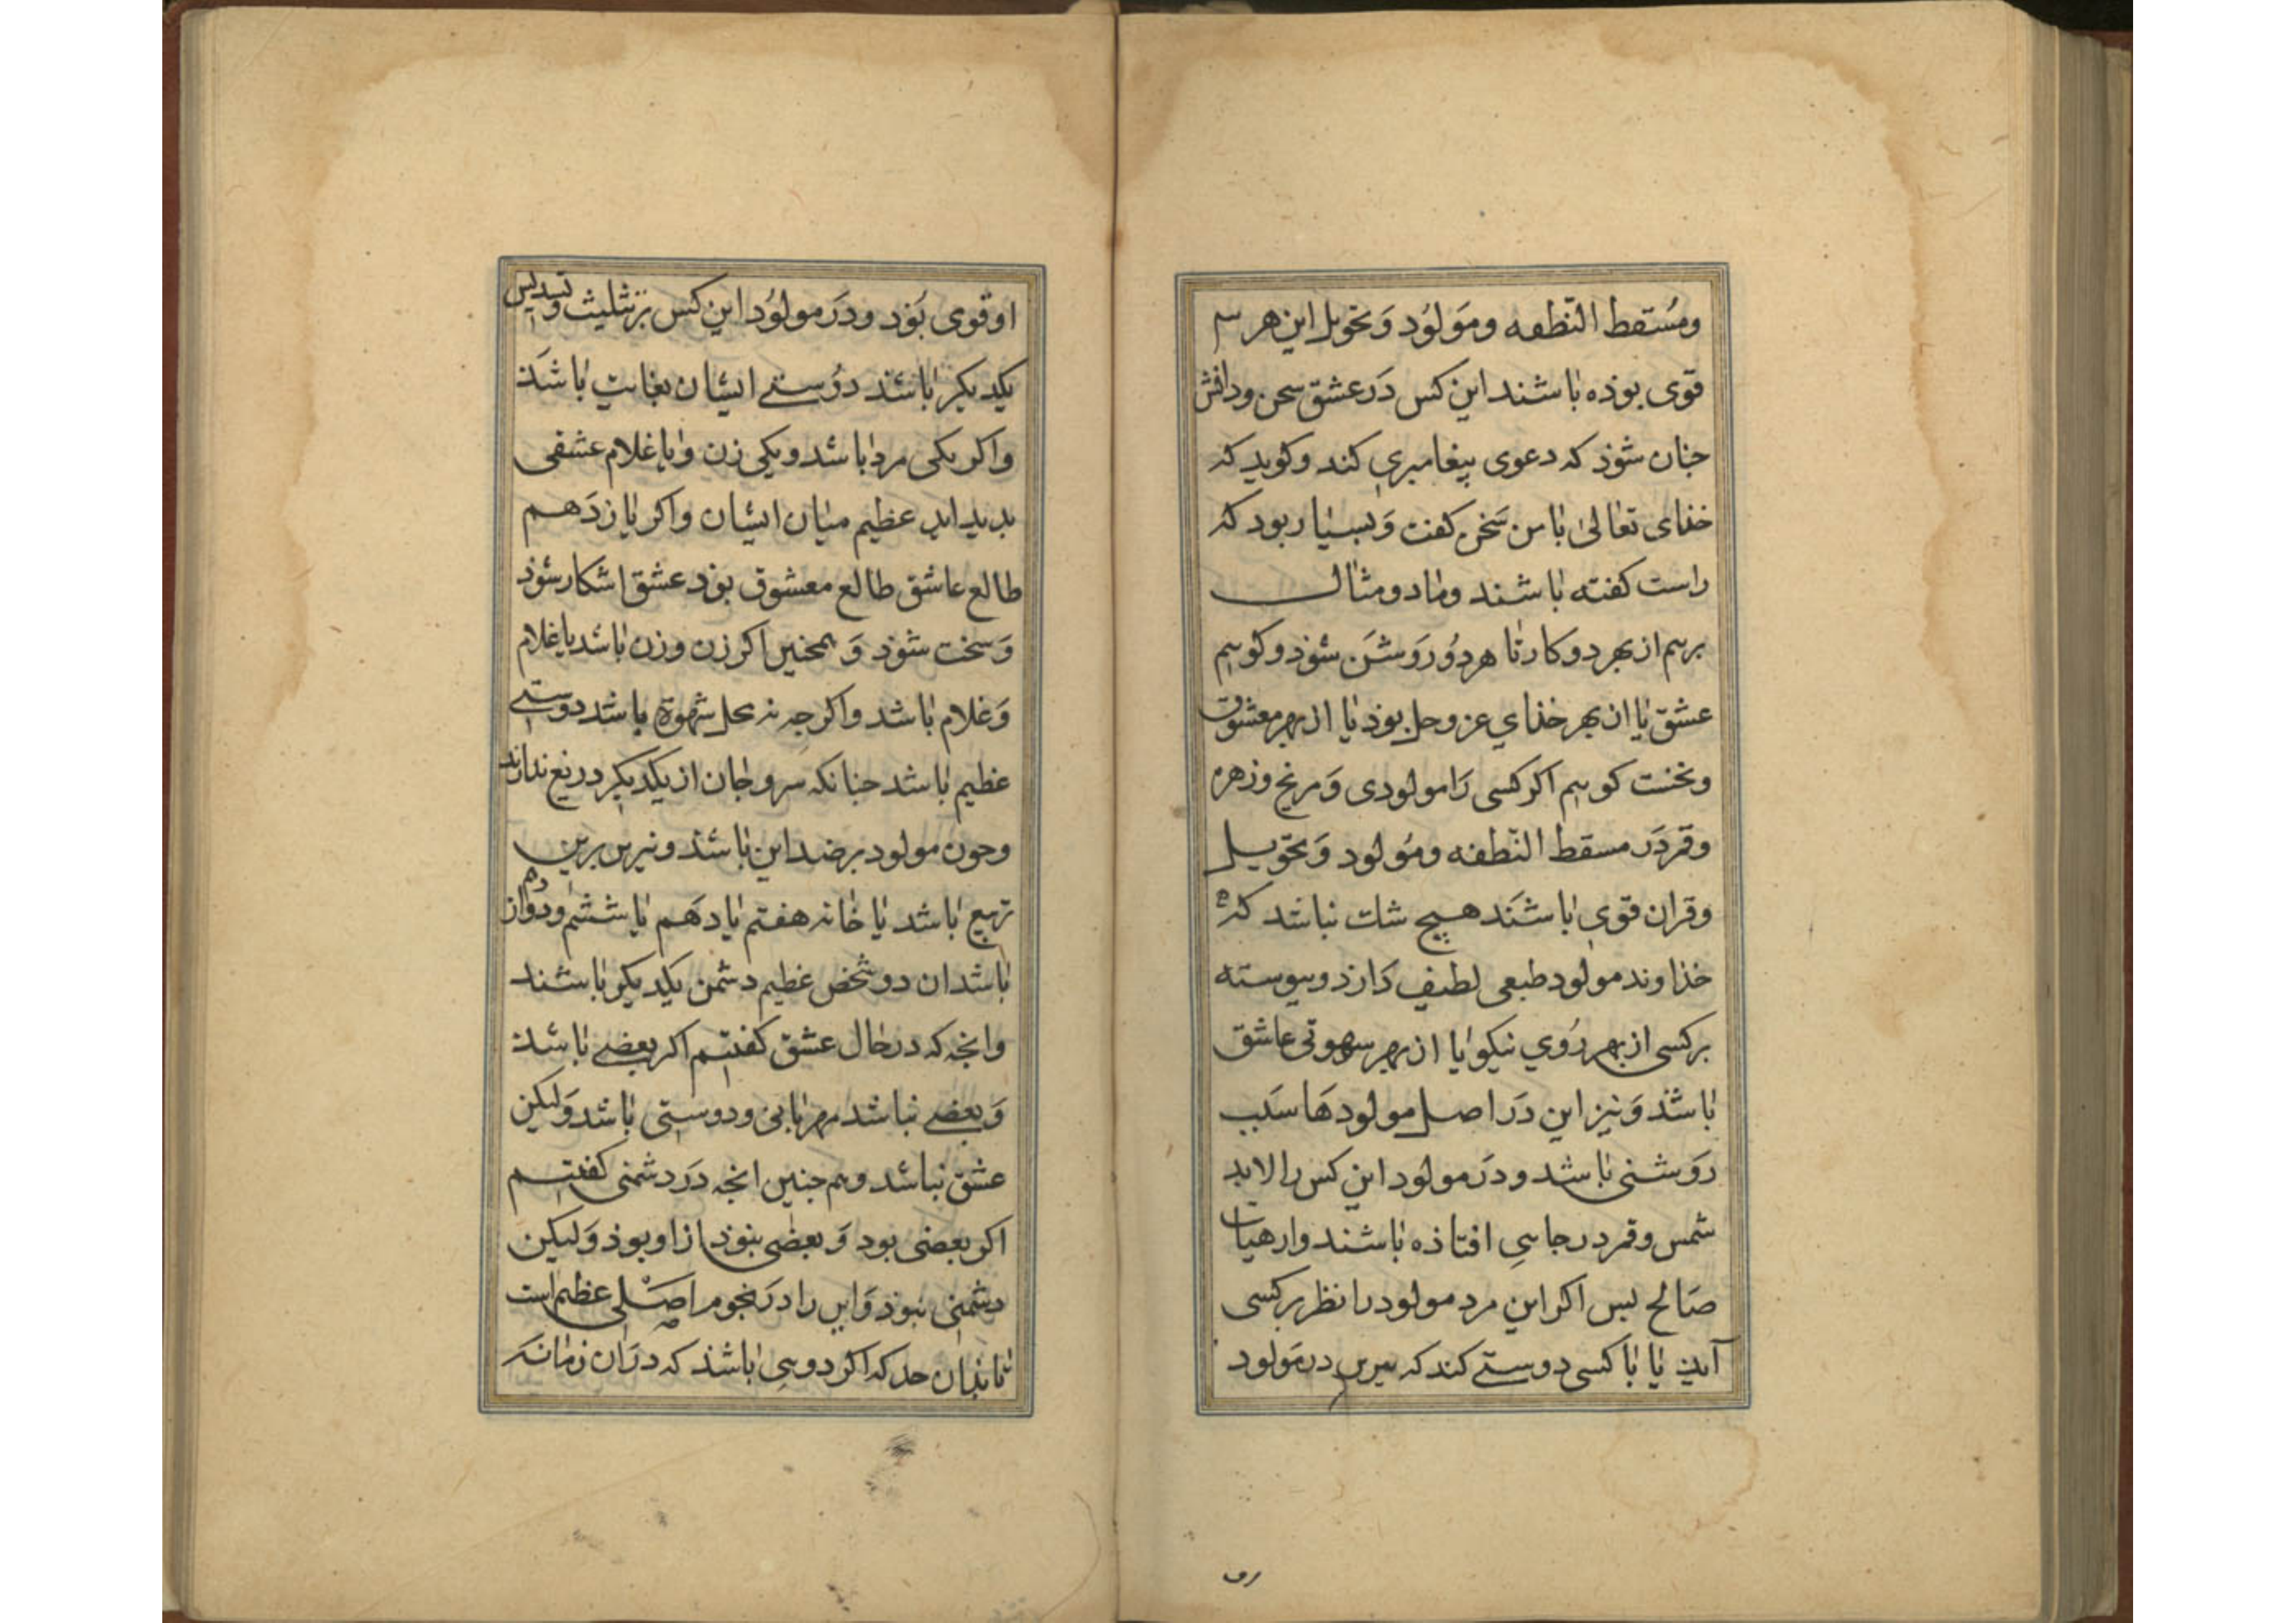 ومُستقط النّطفه ومَولوُد وَتحویل این هر سه
قوی بوذه باشند این کس دَر عشق سخن ودانش
جنان شوذ که دعوی پیغامبری کند وکوید که
خذای تعالیٰ با من سَخن کفت وَبسیار بود که
راست کفته باشند وما دو مثال
برنهیم از بهر دو کار تا هر دوُ رَوشَن شوذ وکوییم
عشق یا از بهر خذاي عز وجل بوذ یا از بهر معشوق
ونخست کوییم اکر کسی رَا مولودی وَمریخ وزهره
وقمر دَر مسقط النّطفه ومَولود وَتحویل
وقران قوی باشَند هیچ شک نباشد که
خذاوند مولود طبعی لطیف دَارذ وپیوسته
بر کسی از بهر رُوي نیکو یا از بهر شهوتی عاشق
باشذ وَنیز این دَر اصل مولود هَا سَبب
رَوشنی باشد ودَر مولود این کس را لابد
شمس وقمر در جایی افتاذه باشند وار هیات
صَالح بس اکر این مرد مولود را نظر بر کسی
آیذ یا با کسی دوستے کند که نیرین در مَولود
او قوی بُوَد ودَر مولوُد این کس بر تثلیث وتسدیس
یکدیکر باشند دوُستے ایشان بغایت باشَذ
واکر یکی مرد باشد ویکی زن ویا غلام عشقی
بدید اید عظیم میان ایشان واکر یازدَهم
طالع عاشق طالع معشوق بوَد عشق اشکار شوذ
وَسخت شوذ وَهمجنین اکر زن وزن باشد یا غلام
وَغلام باشد واکر جه نه محل شهوة باشد دوستے
عظیم باشد جنانکه سر وجان از یکدیکر دریغ ندارند
وجون مولود بر ضد این باشذ ونیرین بر
تربیع باشد یا خانه هفتم یا دهَم یا ششم ودوازدهم
باشد ان دو شخص عظیم دشمن یکدیکر باشند
وانجه که در حال عشق کفتیم اکر بعضے باشذ
وَبعضے نباشد مهربانی ودوستی باشد وَلیکن
عشق نباشد وهم جنین انجه دَر دشمنی کفتیم
اکر بعضی بود وَبعضی نبوذ ازار بوذ وَلیکن
دشمنی نبوذ وَاین را دَر نجوم اصَلی عظیم است
تا بذان حد که اکر دو باشذ که در ان زمانه